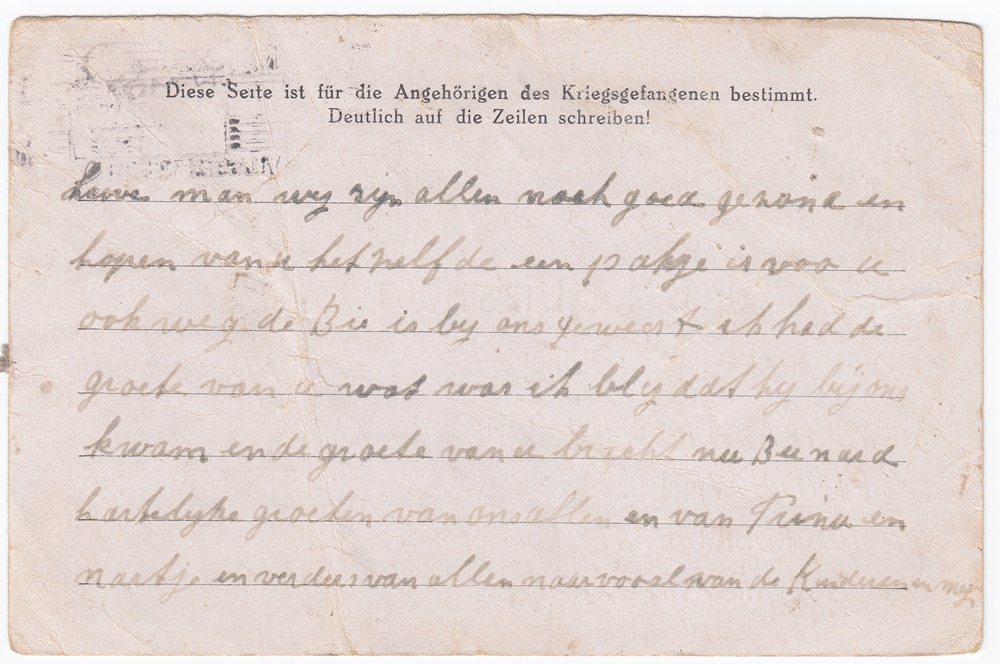 Diese Seite ist für die Angehörigen des Kriegsgefangenen bestimmt.
Deutlich auf die Zeilen schreiben!
Lieve man wij zijn allen noch goed gezond en
hopen van u het zelfde een pakje is voo u
ook weg de Bie is bij ons geweest ik had de
groete van u wat was ik blij dat hij bij ons
kwam en de groete van u bracht nu Bernard
hartelijke groeten van ons allen en van Trina en
en verders van allen vooral van de Kinderen en mij